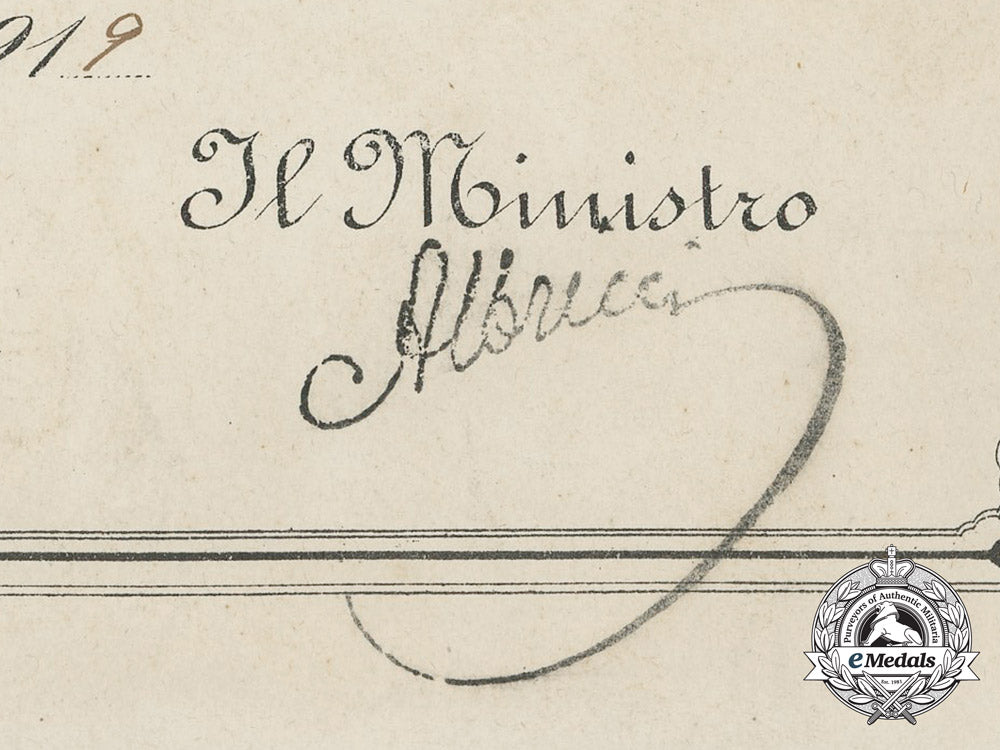 919
Il Ministro
Albricci
Purveyors of Authentic Militaria
eMedals
Est. 1981